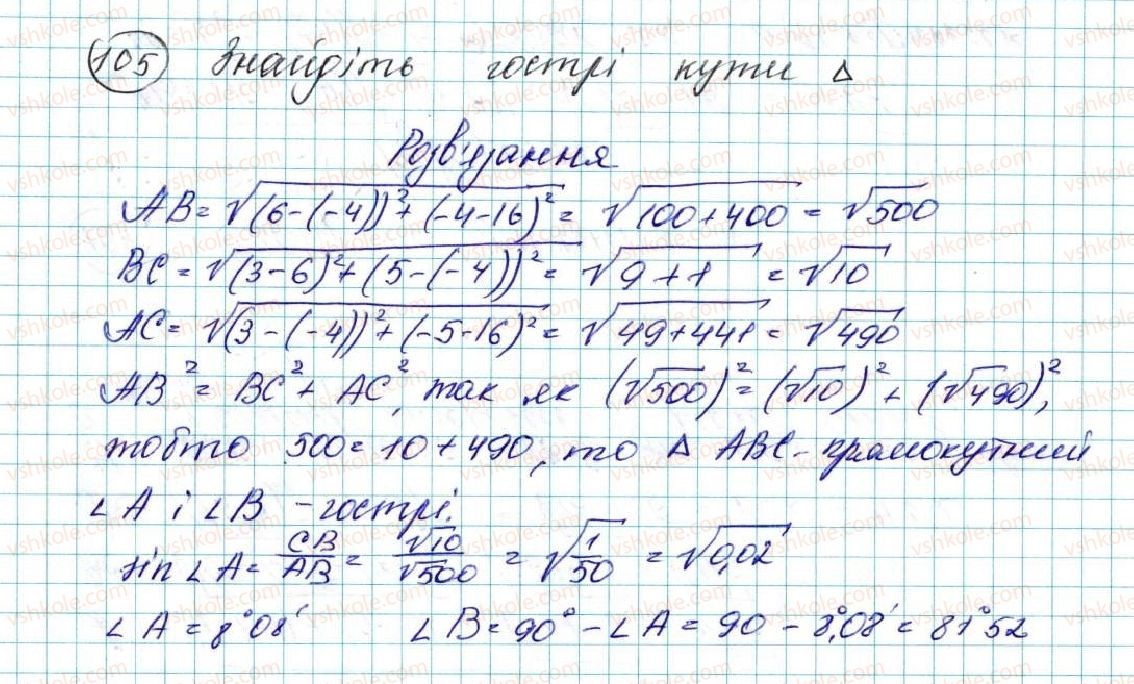 105 Знайдіть гострі кути △
Розв'язання
AB = √(6-(-4))² + (-4-16)² = √100+400 = √500
BC = √(3-6)² + (5-(-4))² = √9+1 = √10
AC = √(3-(-4))² + (-5-16)² = √49+441 = √490
AB² = BC² + AC², так як (√500)² = (√10)² + (√490)²,
тобто 500 = 10 + 490, то △ ABC - прямокутний
∠A і ∠B - гострі.
sin ∠A = CB/AB = √10/√500 = √1/50 = √0,02
∠A = 8°08' ∠B = 90° - ∠A = 90 - 8,°08' = 81°52